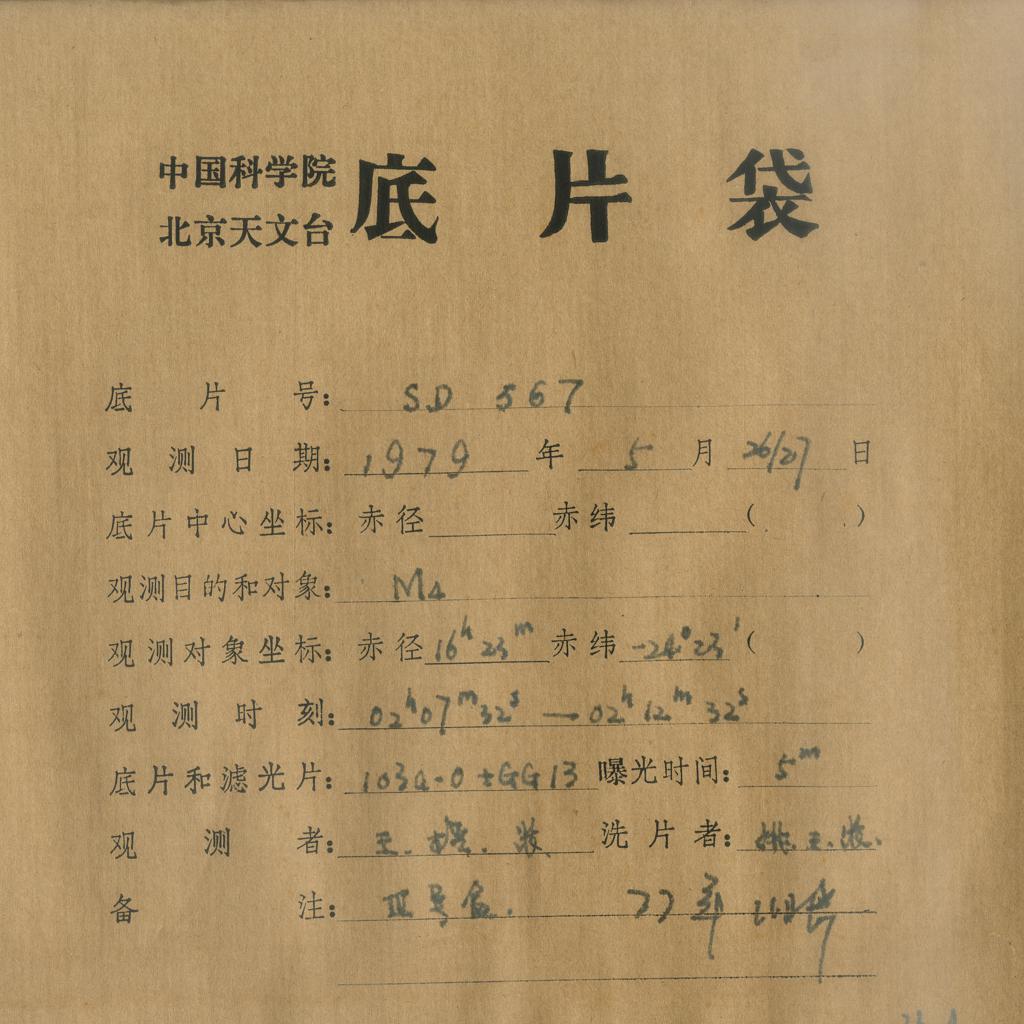 中国科学院
北京天文台
底片袋
底片号: SD 567
观测日期: 1979年 5月 26/27日
底片中心坐标: 赤径 赤纬 ( )
观测目的和对象: M4
观测对象坐标: 赤径 16h 23m 赤纬 -24°23' ( )
观测时刻: 02h07m32s — 02h12m32s
底片和滤光片: 103a-O +GG13 曝光时间: 5m
观测者: 王. 洗片者: 姚.王.
备注: 号盒. 77年